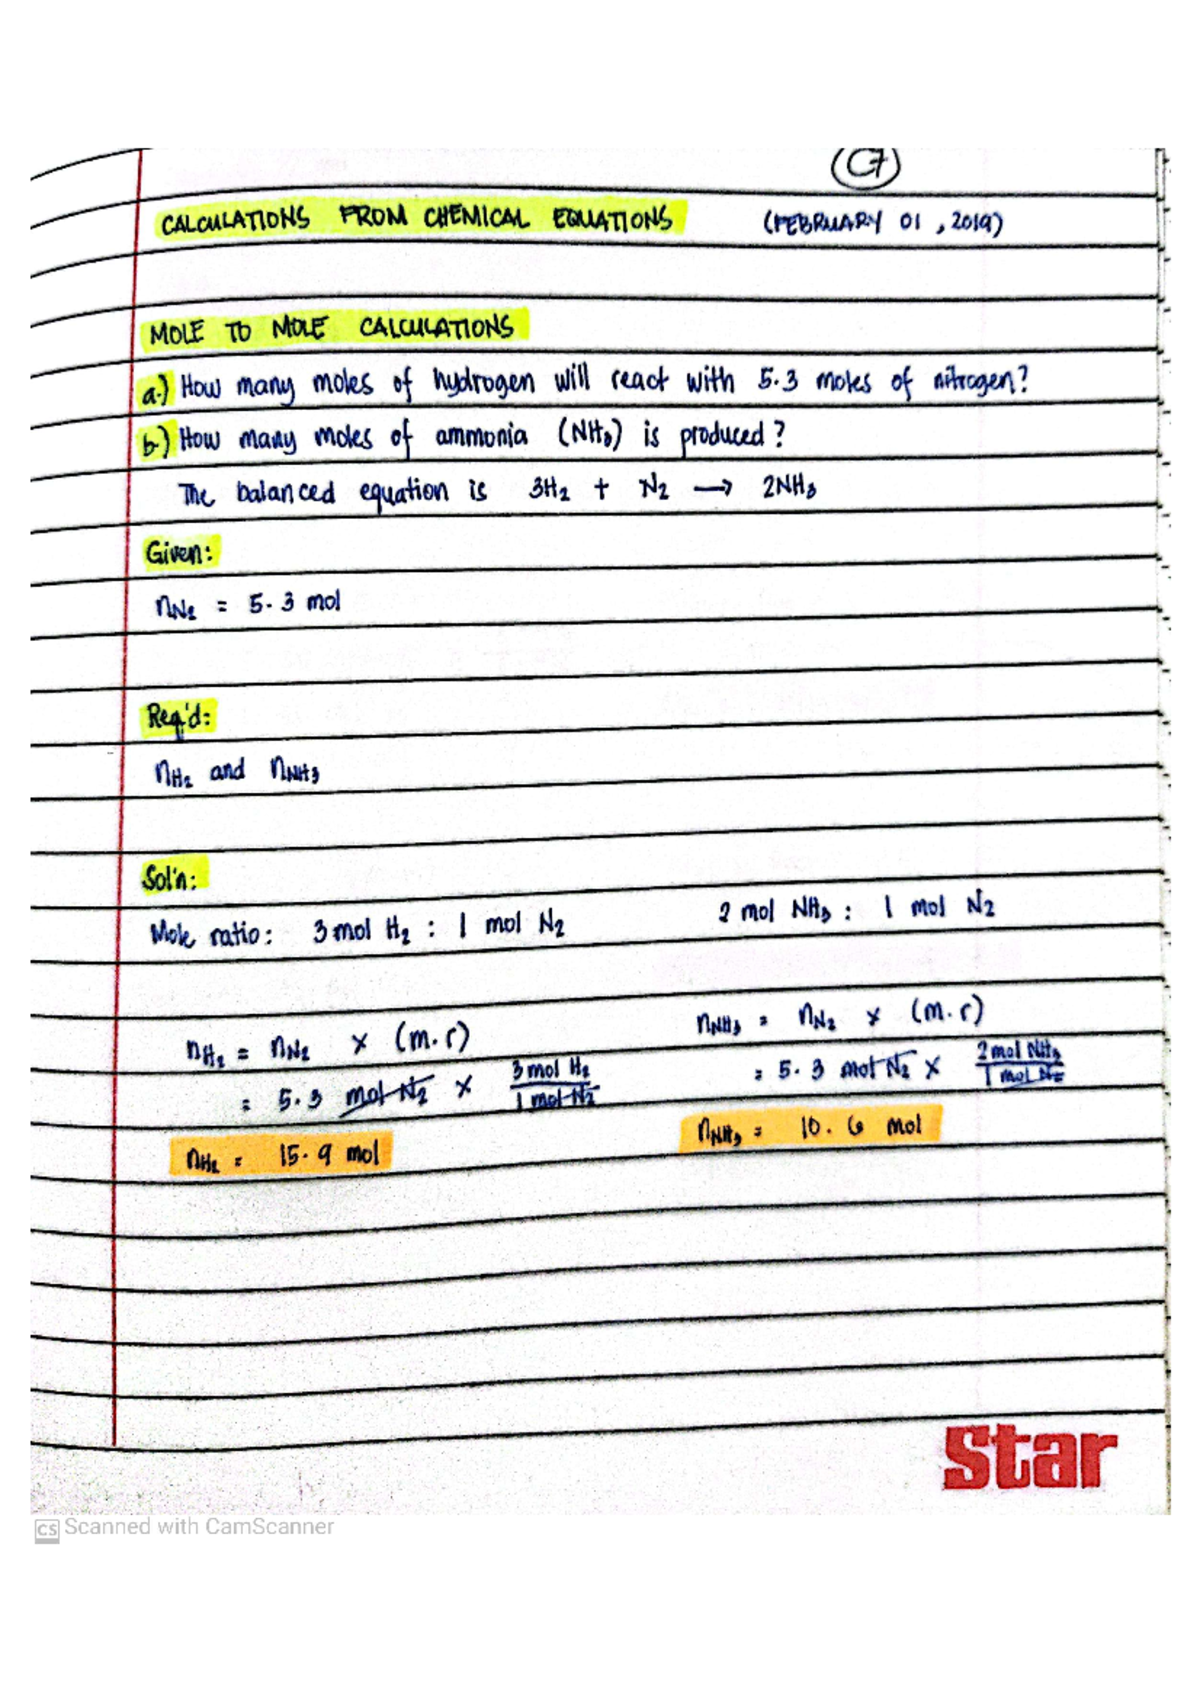 C7
CALCULATIONS FROM CHEMICAL EQUATIONS (FEBRUARY 01, 2019)
MOLE TO MOLE CALCULATIONS
a.) How many moles of hydrogen will react with 5.3 moles of nitrogen?
b.) How many moles of ammonia (NH₃) is produced?
The balanced equation is 3H₂ + N₂ → 2NH₃
Given:
nN₂ = 5.3 mol
Req'd:
nH₂ and nNH₃
Sol'n:
Mole ratio: 3 mol H₂ : 1 mol N₂ 2 mol NH₃ : 1 mol N₂
nH₂ = nN₂ × (m.r) nNH₃ = nN₂ × (m.r)
= 5.3 mol N₂ × 3 mol H₂ / 1 mol N₂ = 5.3 mol N₂ × 2 mol NH₃ / 1 mol N₂
nH₂ = 15.9 mol nNH₃ = 10.6 mol
Star
CS Scanned with CamScanner